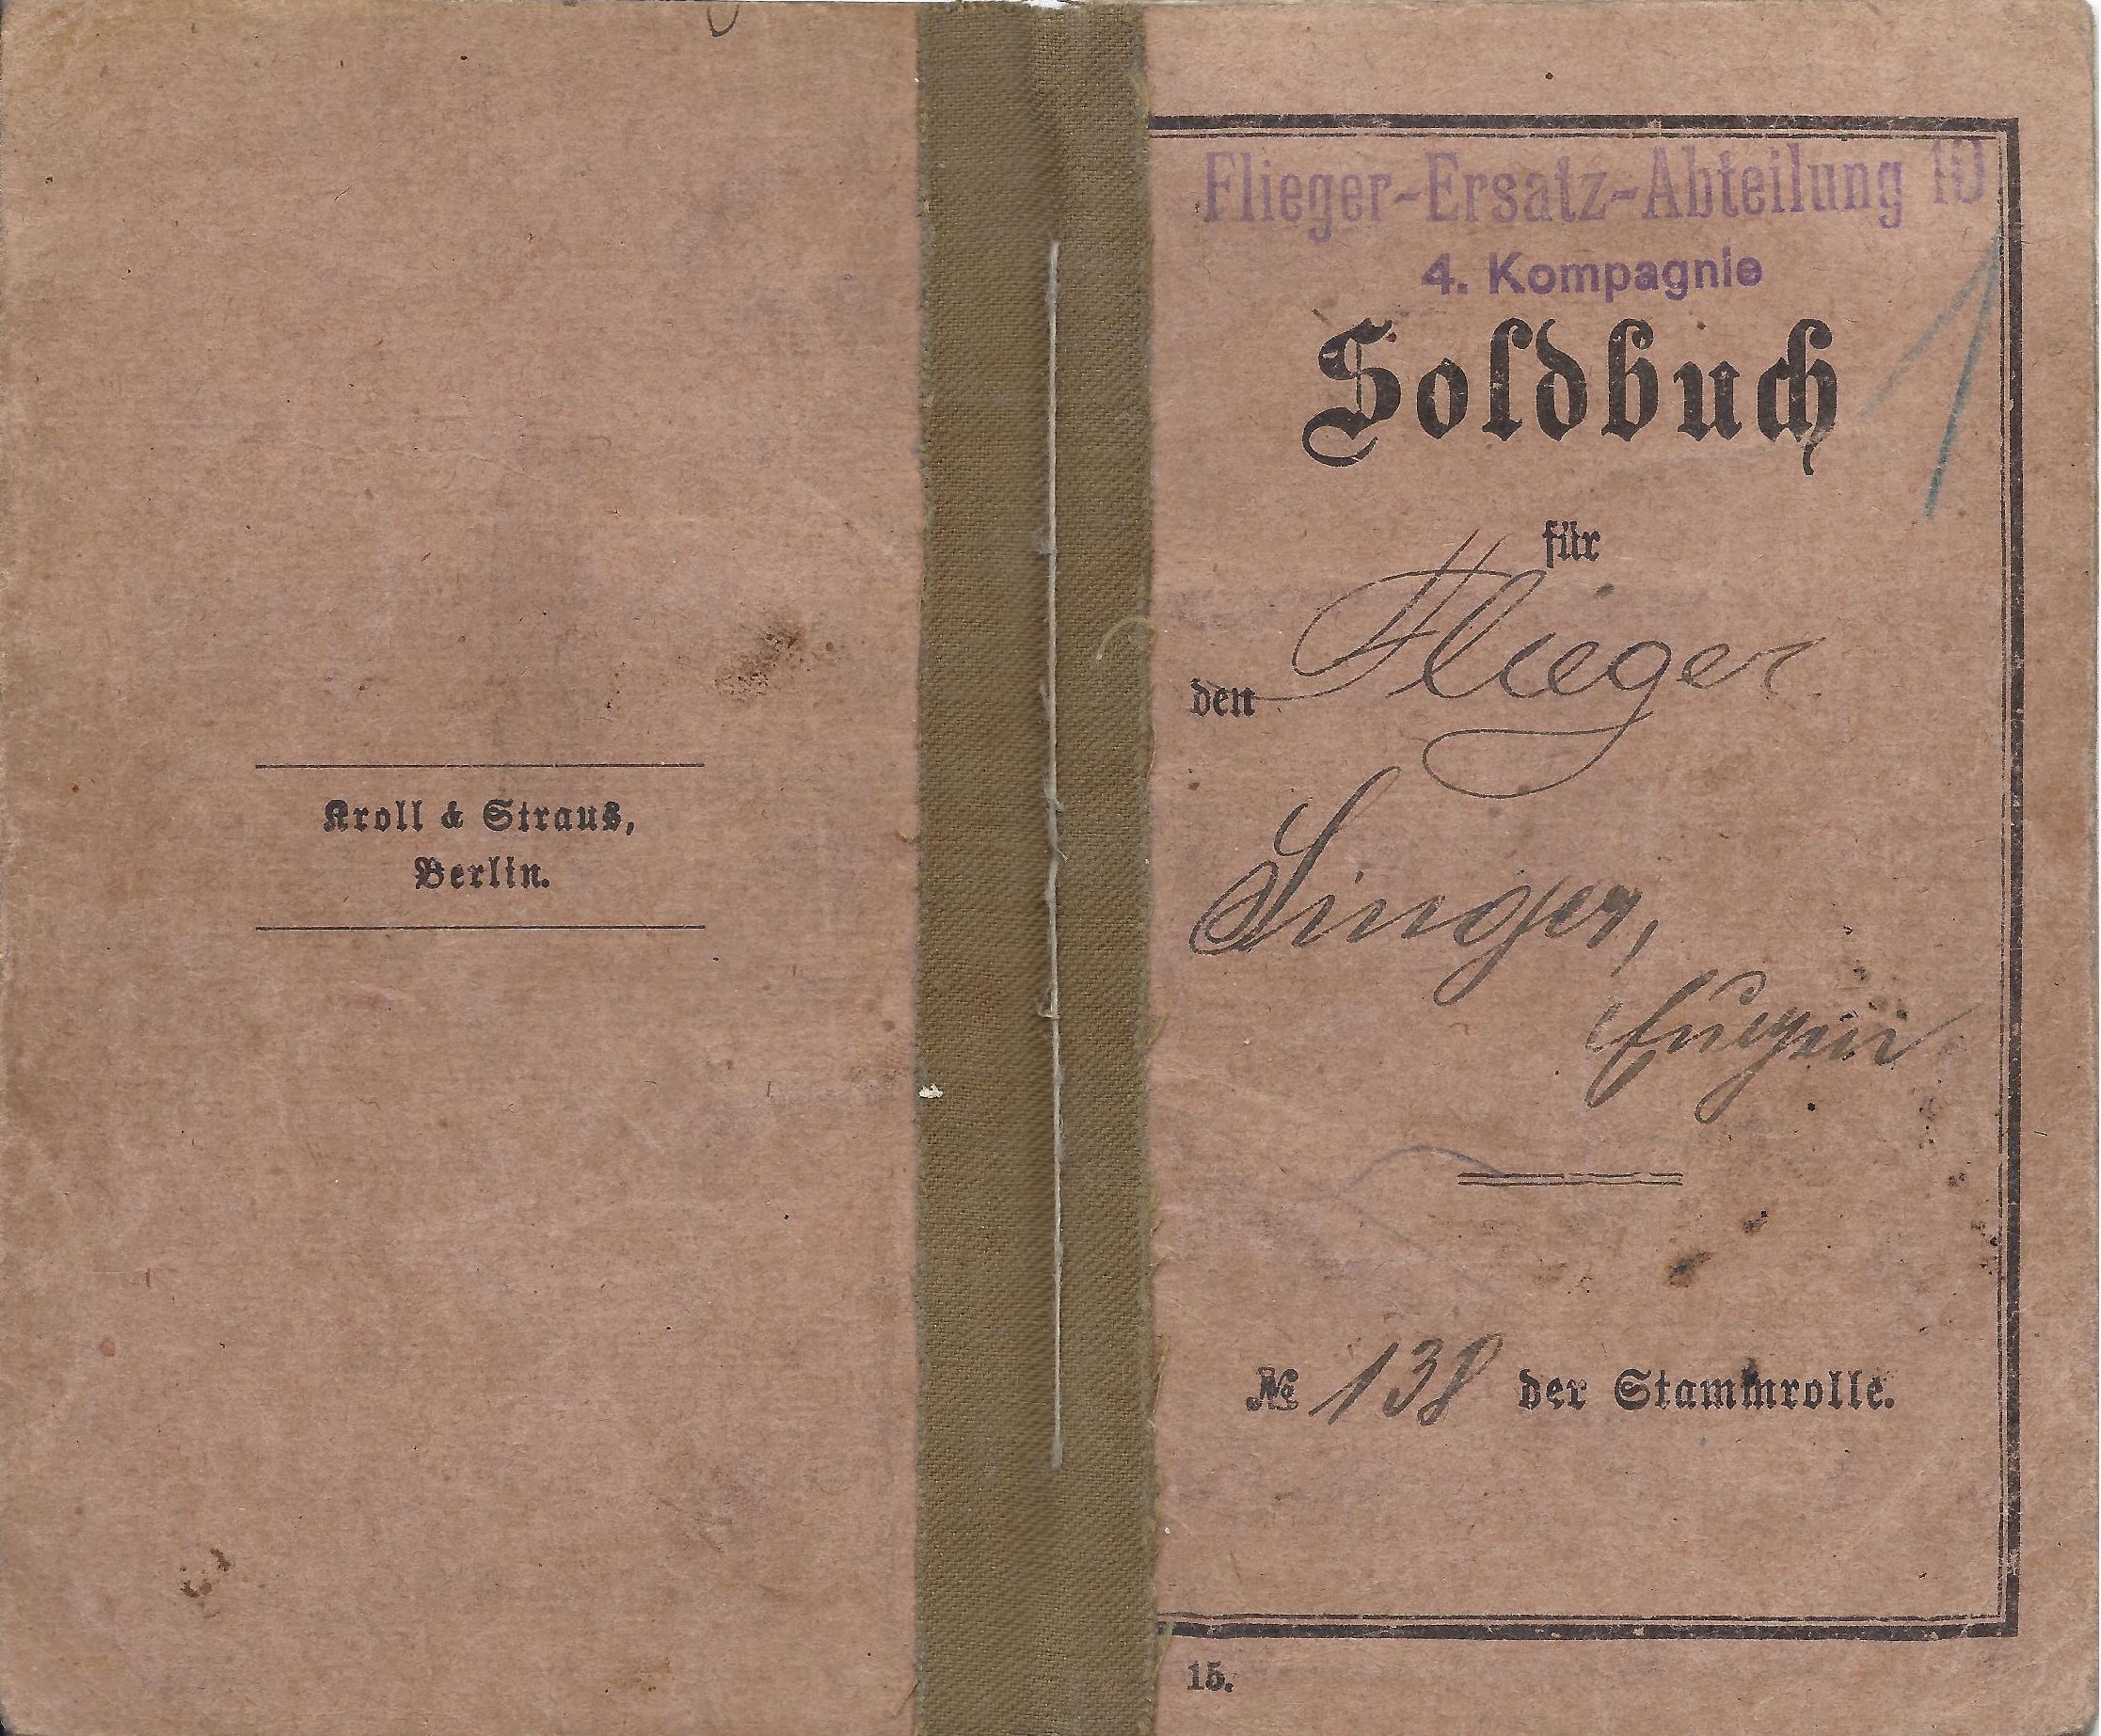 Kroll & Straus,
Berlin.
Flieger-Ersatz-Abteilung 10
4. Kompagnie
1
Soldbuch
für
den Flieger
Singer,
Eugen
№ 138 der Stammrolle.
15.